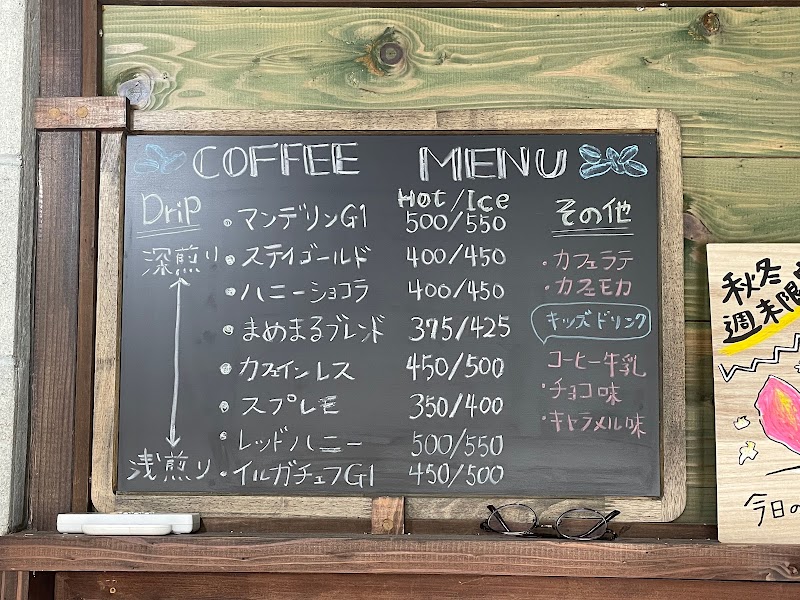 COFFEE MENU
Drip
Hot/Ice
深煎り
浅煎り
・マンデリンG1 500/550
・ステイゴールド 400/450
・ハニーショコラ 400/450
・まめまるブレンド 375/425
・カフェインレス 450/500
・スプレモ 350/400
・レッドハニー 500/550
・イルガチェフG1 450/500
その他
・カフェラテ
・カフェモカ
キッズドリンク
コーヒー牛乳
・チョコ味
・キャラメル味
秋冬
週末限
今日の